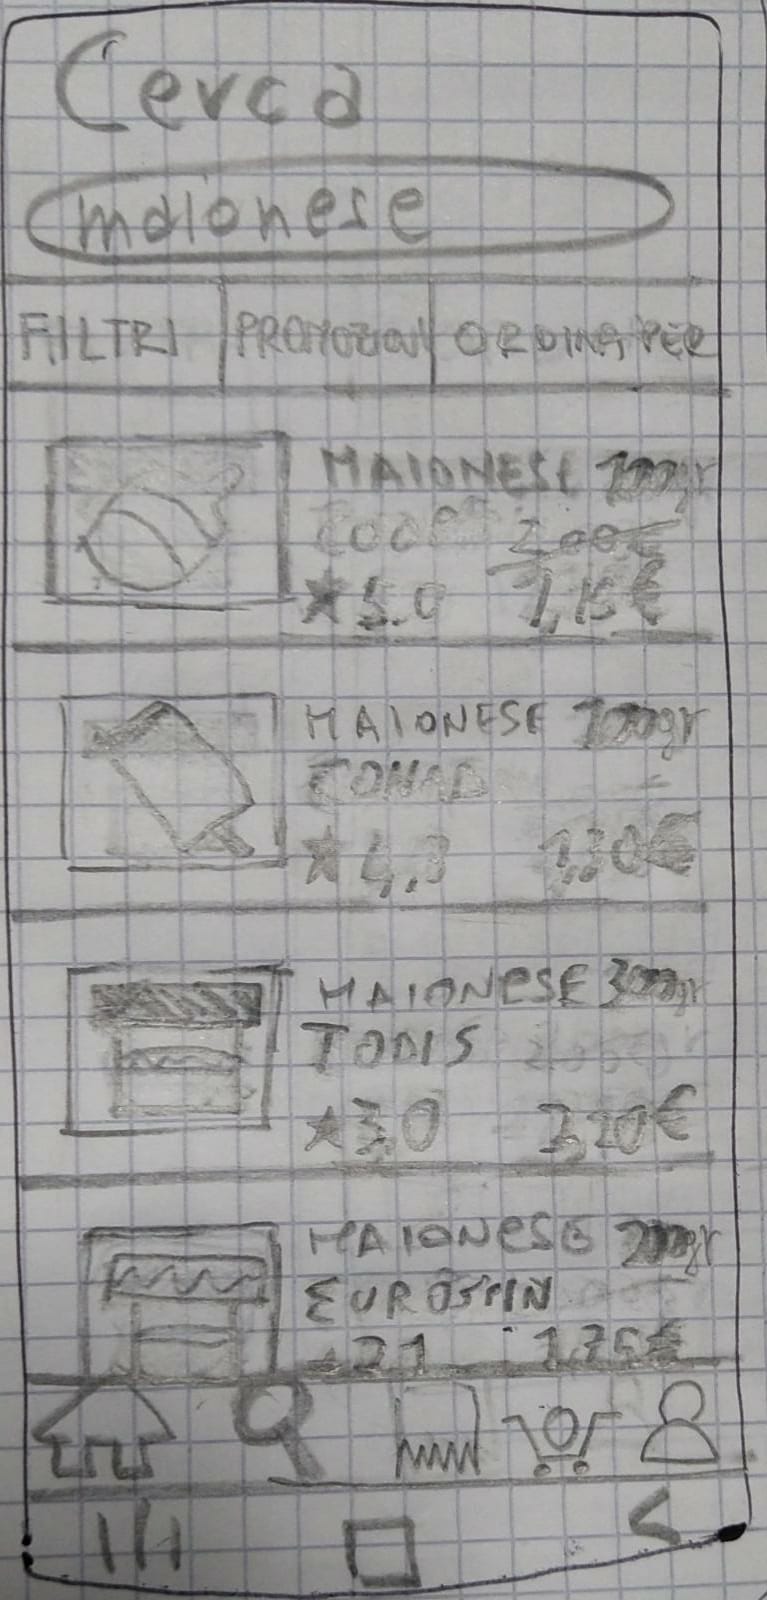 Cerca
maionese
FILTRI PROMOZIONI ORDINA PER
MAIONESE 100gr
COOP 2,00€
★5.0 1,15€
MAIONESE 100gr
CONAD
★4,3 1,30€
MAIONESE 300gr
TODIS
★3,0 3,20€
MAIONESE 200gr
EUROSPIN
2,1 1,75€